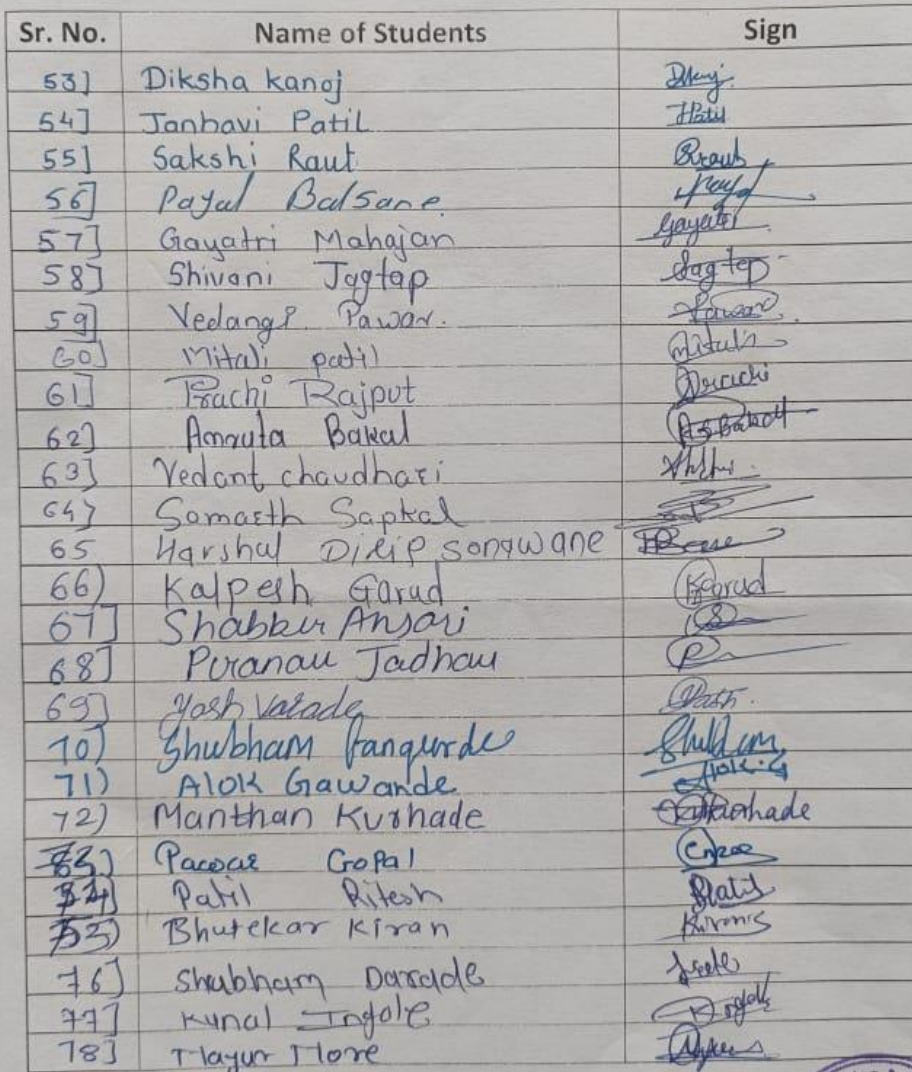 Sr. No. Name of Students Sign
53] Diksha kanoj
54] Janhavi Patil Patil
55] Sakshi Raut Rraut
56] Payal Balsane Payal
57] Gayatri Mahajan Gayatri
58] Shivani Jagtap Jagtap
59] Vedangi Pawar. Pawar
60] Mitali patil Mitali
61] Prachi Rajput Prachi
62] Amruta Bakal ASBakal
63] Vedant chaudhari
64) Samarth Sapkal
65 Harshal Dilip sonawane
66) Kalpesh Garud KGarud
67] Shabbir Ansari
68] Pranav Jadhav
69] Yosh Varade Yash.
70) Shubham Fangurde Shubham
71) Alok Gawande Alok.G
72) Manthan Kurhade
73) Pawar Gopal
74) Patil Ritesh Patil
75) Bhutekar Kiran
76] Shubham Darade
77] Kunal Ingole Ingole
78] Mayur More